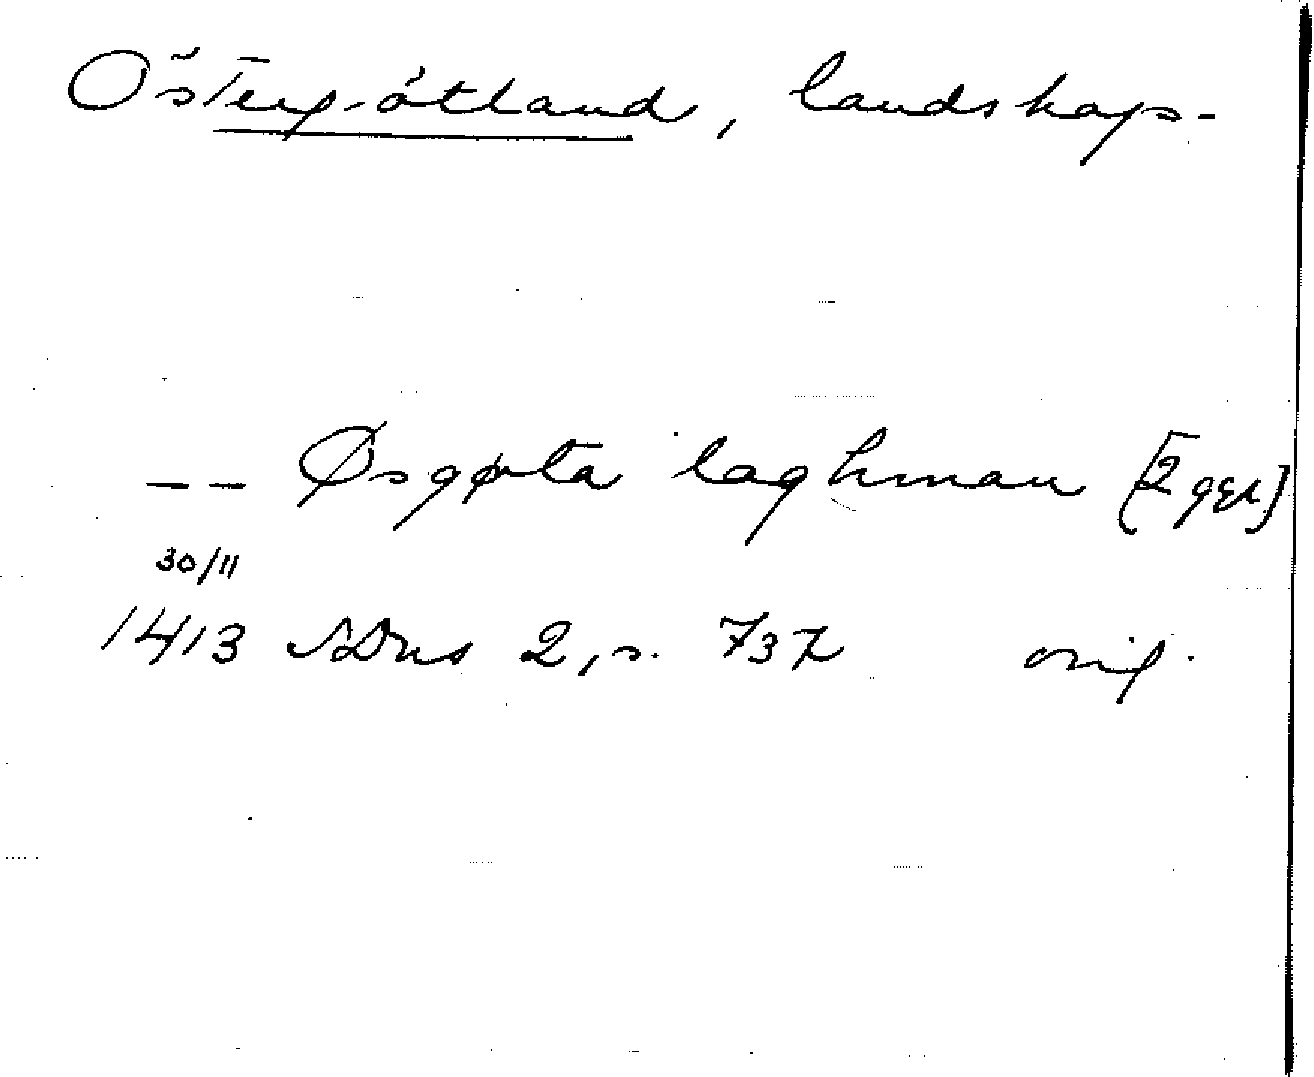 Östergötland, landskap.
-- Øsgøta laghman [2 ggr]
30/11
1413 SDns 2, s. 737 orig.